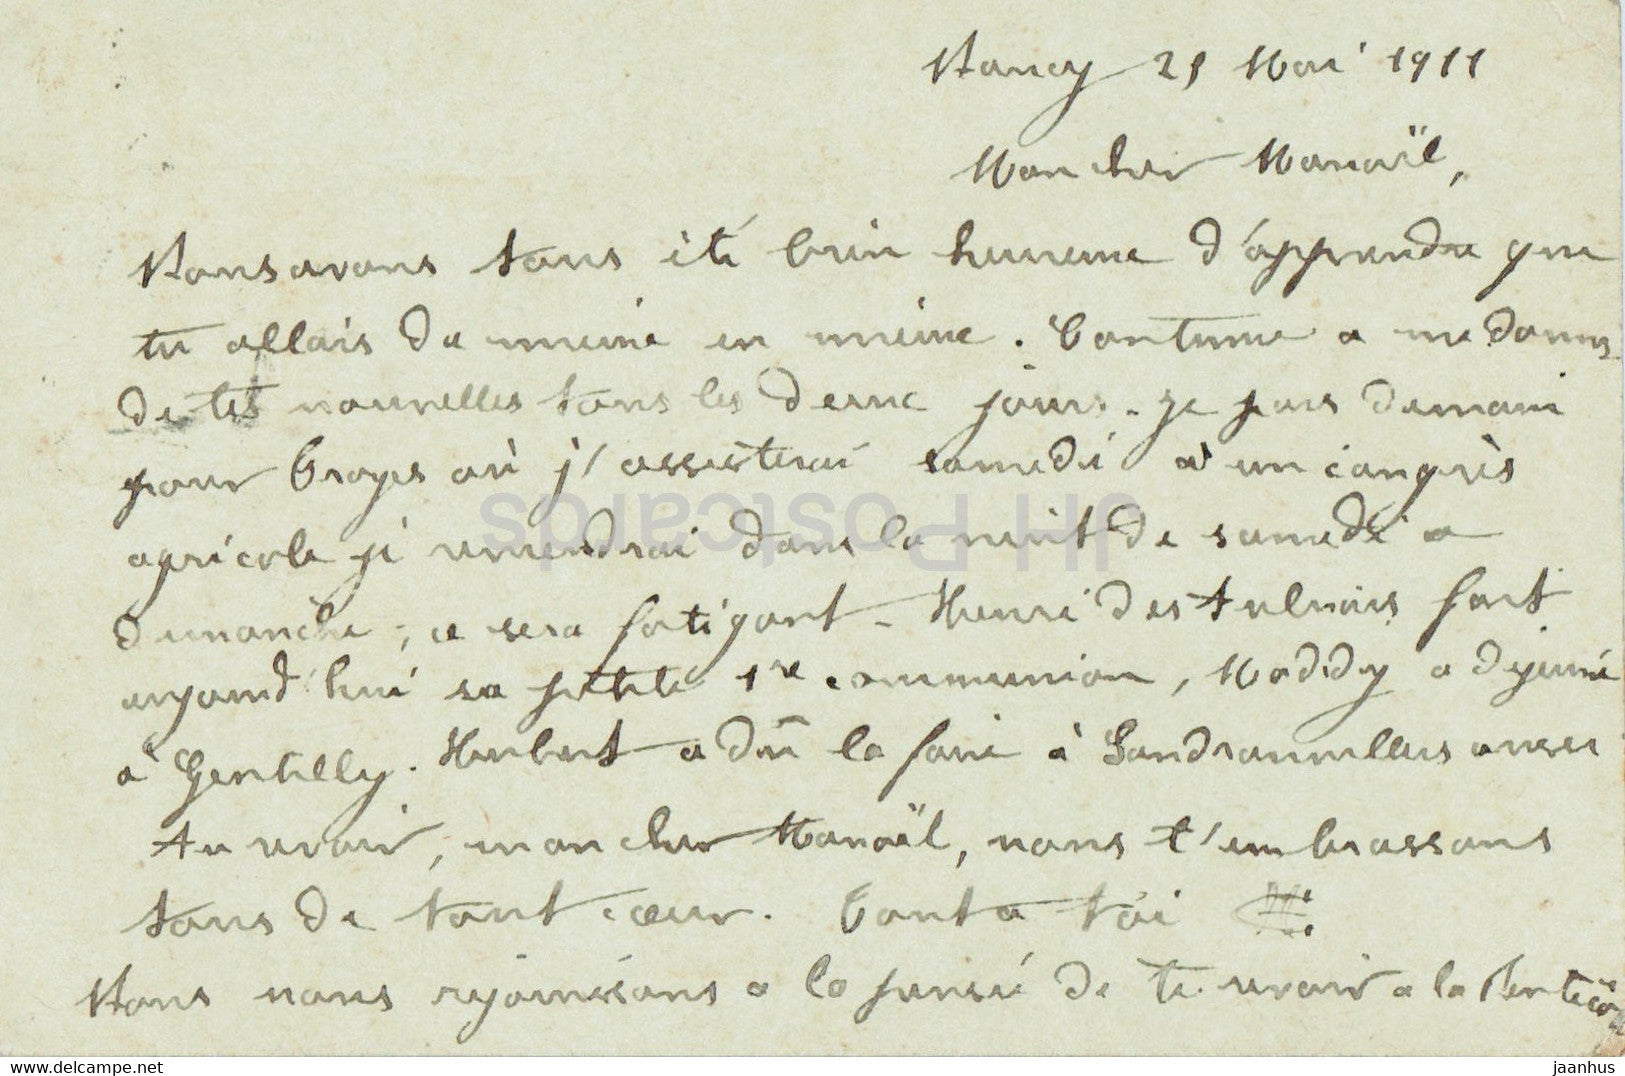 Nancy 25 Mai 1911
Mon cher Manoël,
Nous avons tous été bien heureux d'apprendre que
tu allais de mieux en mieux. Continue a me donner
de tes nouvelles tous les deux jours. Je pars demain
pour Troyes où j'assisterai samedi à un congrès
agricole je reviendrai dans la nuit de samedi a
dimanche ; ce sera fatigant - Henri des Aulnois fait
aujourd'hui sa petite 1re communion, Maddy a déjeuné
à Gentilly. Hubert a dû la faire à Vandranvillers aussi
Au revoir, mon cher Manoël, nous t'embrassons
tous de tout cœur. Tout a toi
Nous nous réjouissons a la pensée de te revoir a la Pentecôte
JH Postcards
www.delcampe.net
jaanhus